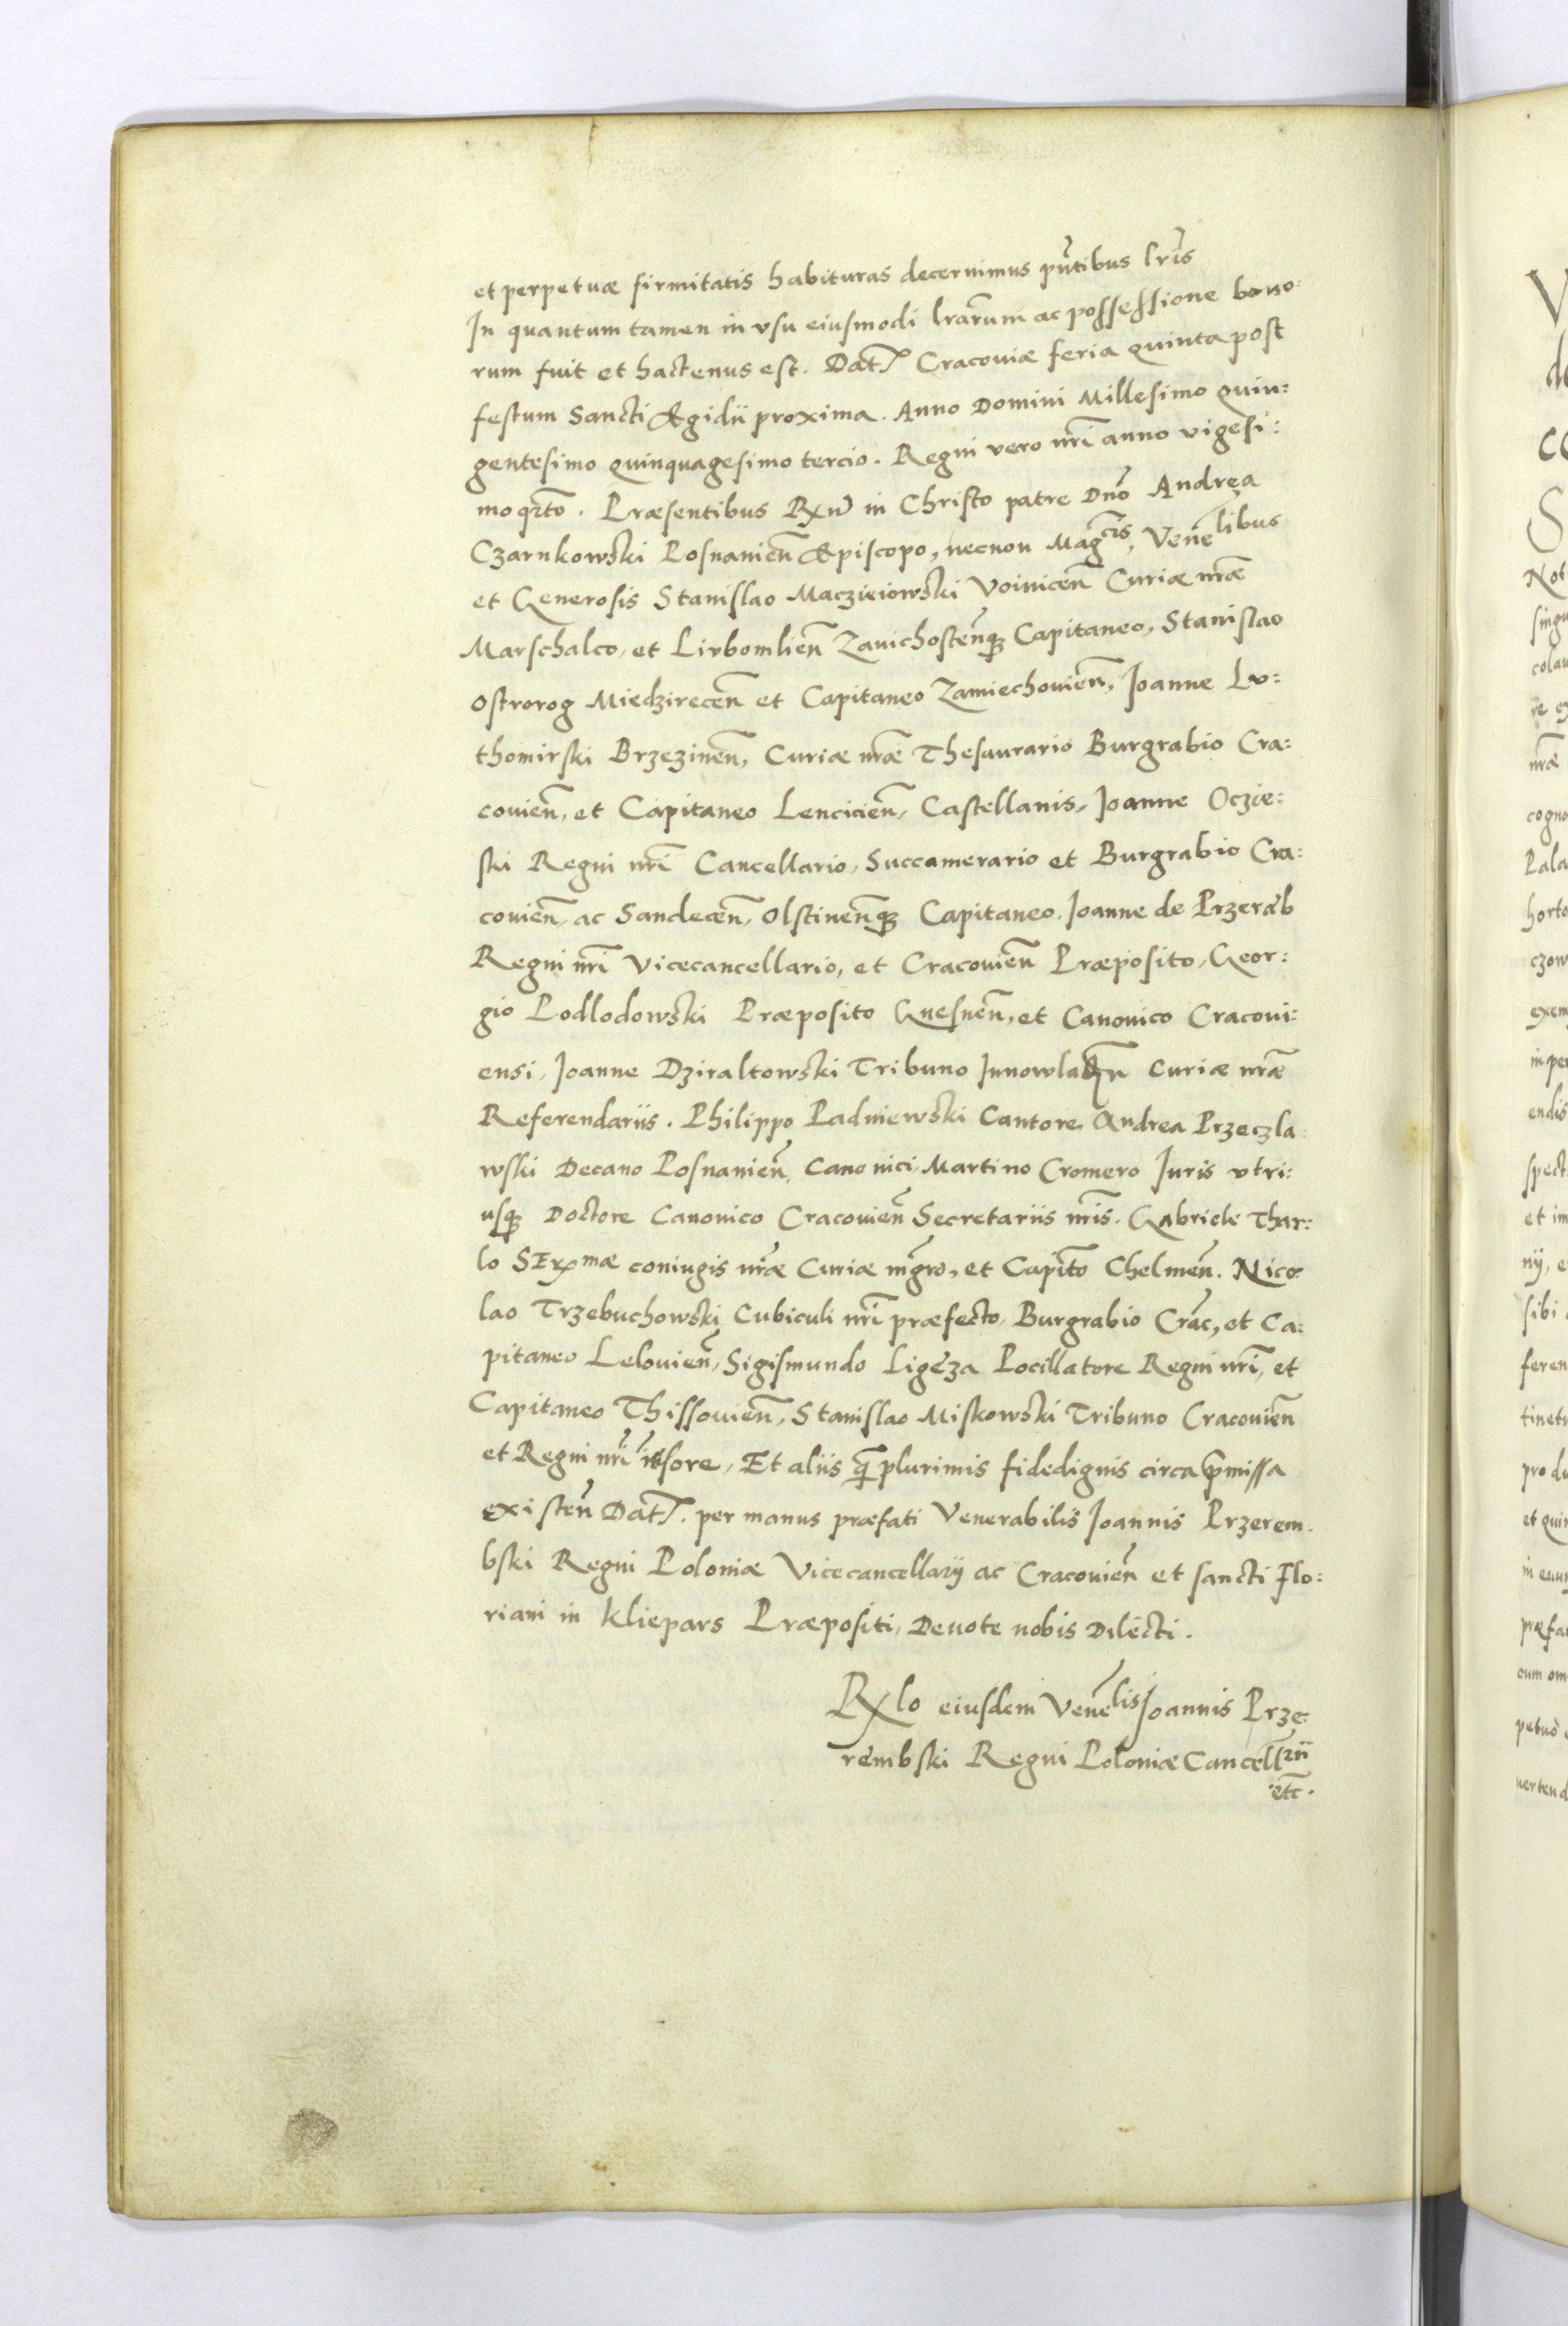 et perpetuæ firmitatis habituras decernimus pñtibus lr̃is
In quantum tamen in vsu eiusmodi lrãrum ac possessione bono:
rum fuit et hactenus est. Dat. Cracouiæ feria quinta post
festum Sancti Ægidii proxima. Anno Domini Millesimo quin:
gentesimo quinquagesimo tercio. Regni vero nr̃i anno vigesi:
mo qr̃to. Præsentibus Rñdo in Christo patre Dño Andrea
Czarnkowski Posnanień Episcopo, necnon Magcis, Venẽlibus
et Generosis Stanislao Maczieiowski Voiniceñ Curiæ nr̃æ
Marschalco, et Livbomlień Zauichosteñq; Capitaneo, Stanislao
Ostrorog Miedzireceñ et Capitaneo Zamiechouień, Joanne Lv:
thomirski Brzezineñ, Curiæ nr̃æ Thesaurario Burgrabio Cra:
couień, et Capitaneo Lencicień, Castellanis, Joanne Oczie:
ski Regni nr̃i Cancellario, Succamerario et Burgrabio Cra:
couień, ac Sandeceñ, Olstineñq; Capitaneo. Joanne de Przerãb
Regni nr̃i Vicecancellario, et Cracouień Præposito, Geor:
gio Podlodowski Præposito Gnesneñ, et Canonico Cracoui:
ensi, Joanne Dziraltowski Tribuno Curiæ nr̃æ
Referendariis. Philippo Padniewski Cantore Andrea Przeczla:
wski Decano Posnanień, Canonici, Martino Cromero Juris vtri:
usq; Doctore Canonico Cracouień Secretariis nr̃is. Gabriele Thar:
lo SEr̃mæ coniugis nr̃æ Curiæ mg̃ro, et Capit̃o Chelmeñ. Nico:
lao Trzebuchowski Cubiculi nr̃i præfecto, Burgrabio Crac̃, et Ca:
pitaneo Lelouień, Sigismundo Ligẽza Pocillatore Regni nr̃i, et
Capitaneo Thissouień, Stanislao Miskowski Tribuno Cracouień
et Regni nr̃i, Et aliis q̃plurimis fidedignis circa p̃missa
existeñ Dat. per manus præfati Venerabilis Joannis Przerem:
bski Regni Poloniæ Vicecancellarij ac Cracouień et sancti Flo:
riani in Kliepars Præpositi, Deuote nobis Dilecti.
Rxlo eiusdem Venẽlis Joannis Prze:
rembski Regni Poloniæ Cancellr̃ii
etc.